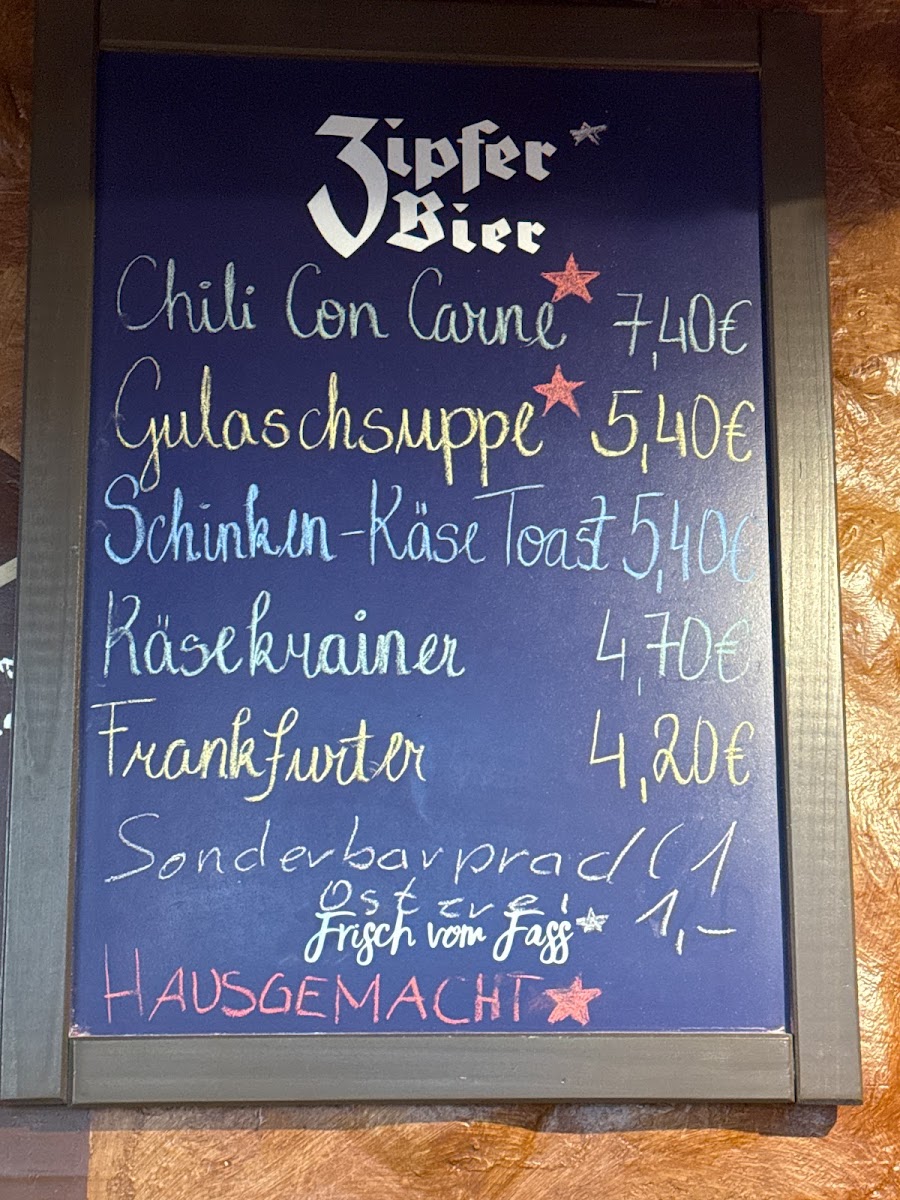 Zipfer
Bier
Chili Con Carne 7,40€
Gulaschsuppe 5,40€
Schinken-Käse Toast 5,40€
Käsekrainer 4,70€
Frankfurter 4,20€
Frisch vom Fass 1,-
HAUSGEMACHT